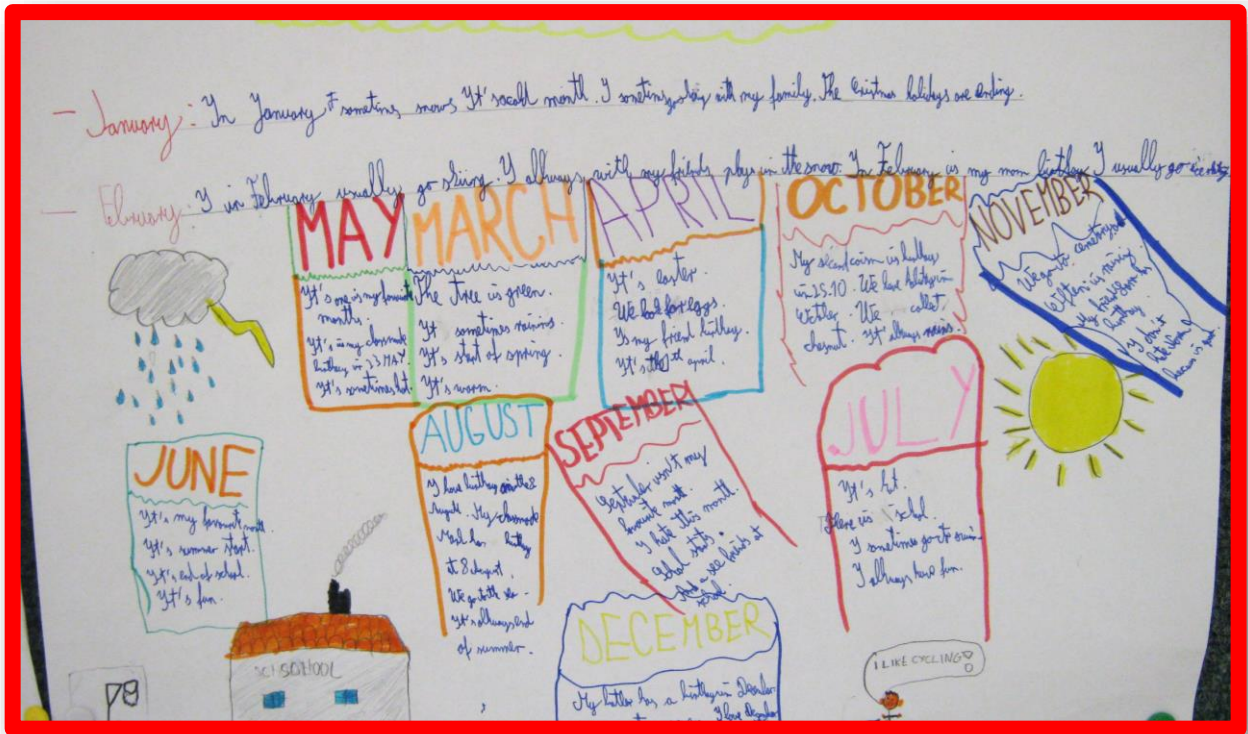 January: In January I sometims snows It's cold month. I sometims play with my family. The Cristmas holidays are ending.
Ebruary: I in February usually go skiing. I allways with my friends plays in the snow. In February is my mom birthday I usually go
MAY
It's one is my favourite
months.
It's is my classmate
birthday in 23 MAY.
It's sometimes hot.
MARCH
The tree is green.
It sometimes raining.
It's start of spring.
It's warm.
APRIL
It's easter.
We look for eggs.
Is my friend birthday.
It's th april.
OCTOBER
My second cousin is birthday
in 25.10. We have holiday in
We collect
chesnut. It always rains.
NOVEMBER
We go to cemetery
It often is rainy
My friend
birthday
I don't
hate
JUNE
It's my favourite month.
It's summer start.
It's end of school.
It's fun.
AUGUST
I have birthday on the 2
August. My classmate
has birthday
at 8 August.
We go to the sea.
It's allways end
of summer.
SEPTEMBER
September isn't my
favourite month.
I hate this month.
School starts.
And a see friends at
school.
JULY
It's hot.
There is school.
I sometimes go to swim.
I allways have fun.
DECEMBER
My brother has a birthday in December.
I love December
SCHOOL
I LIKE CYCLING!